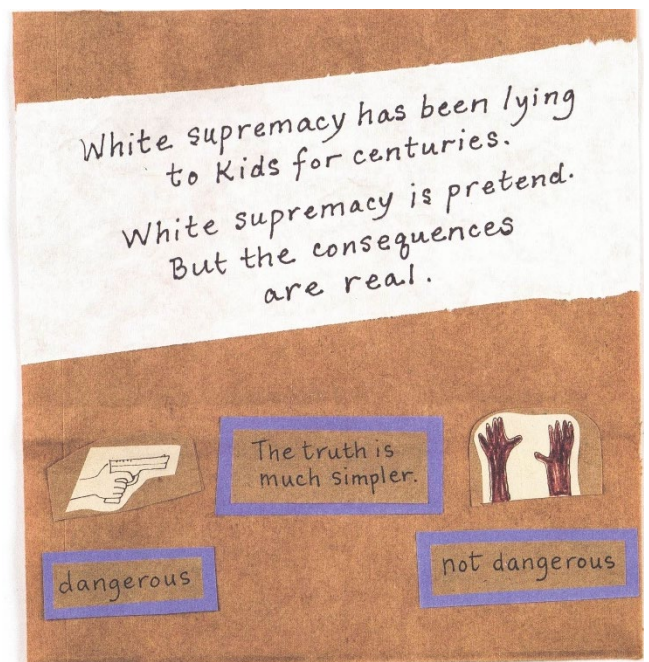 White supremacy has been lying
to Kids for centuries.
White supremacy is pretend.
But the consequences
are real.
The truth is
much simpler.
dangerous
not dangerous